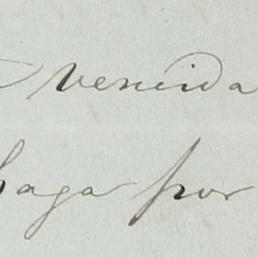 vencida
haga por